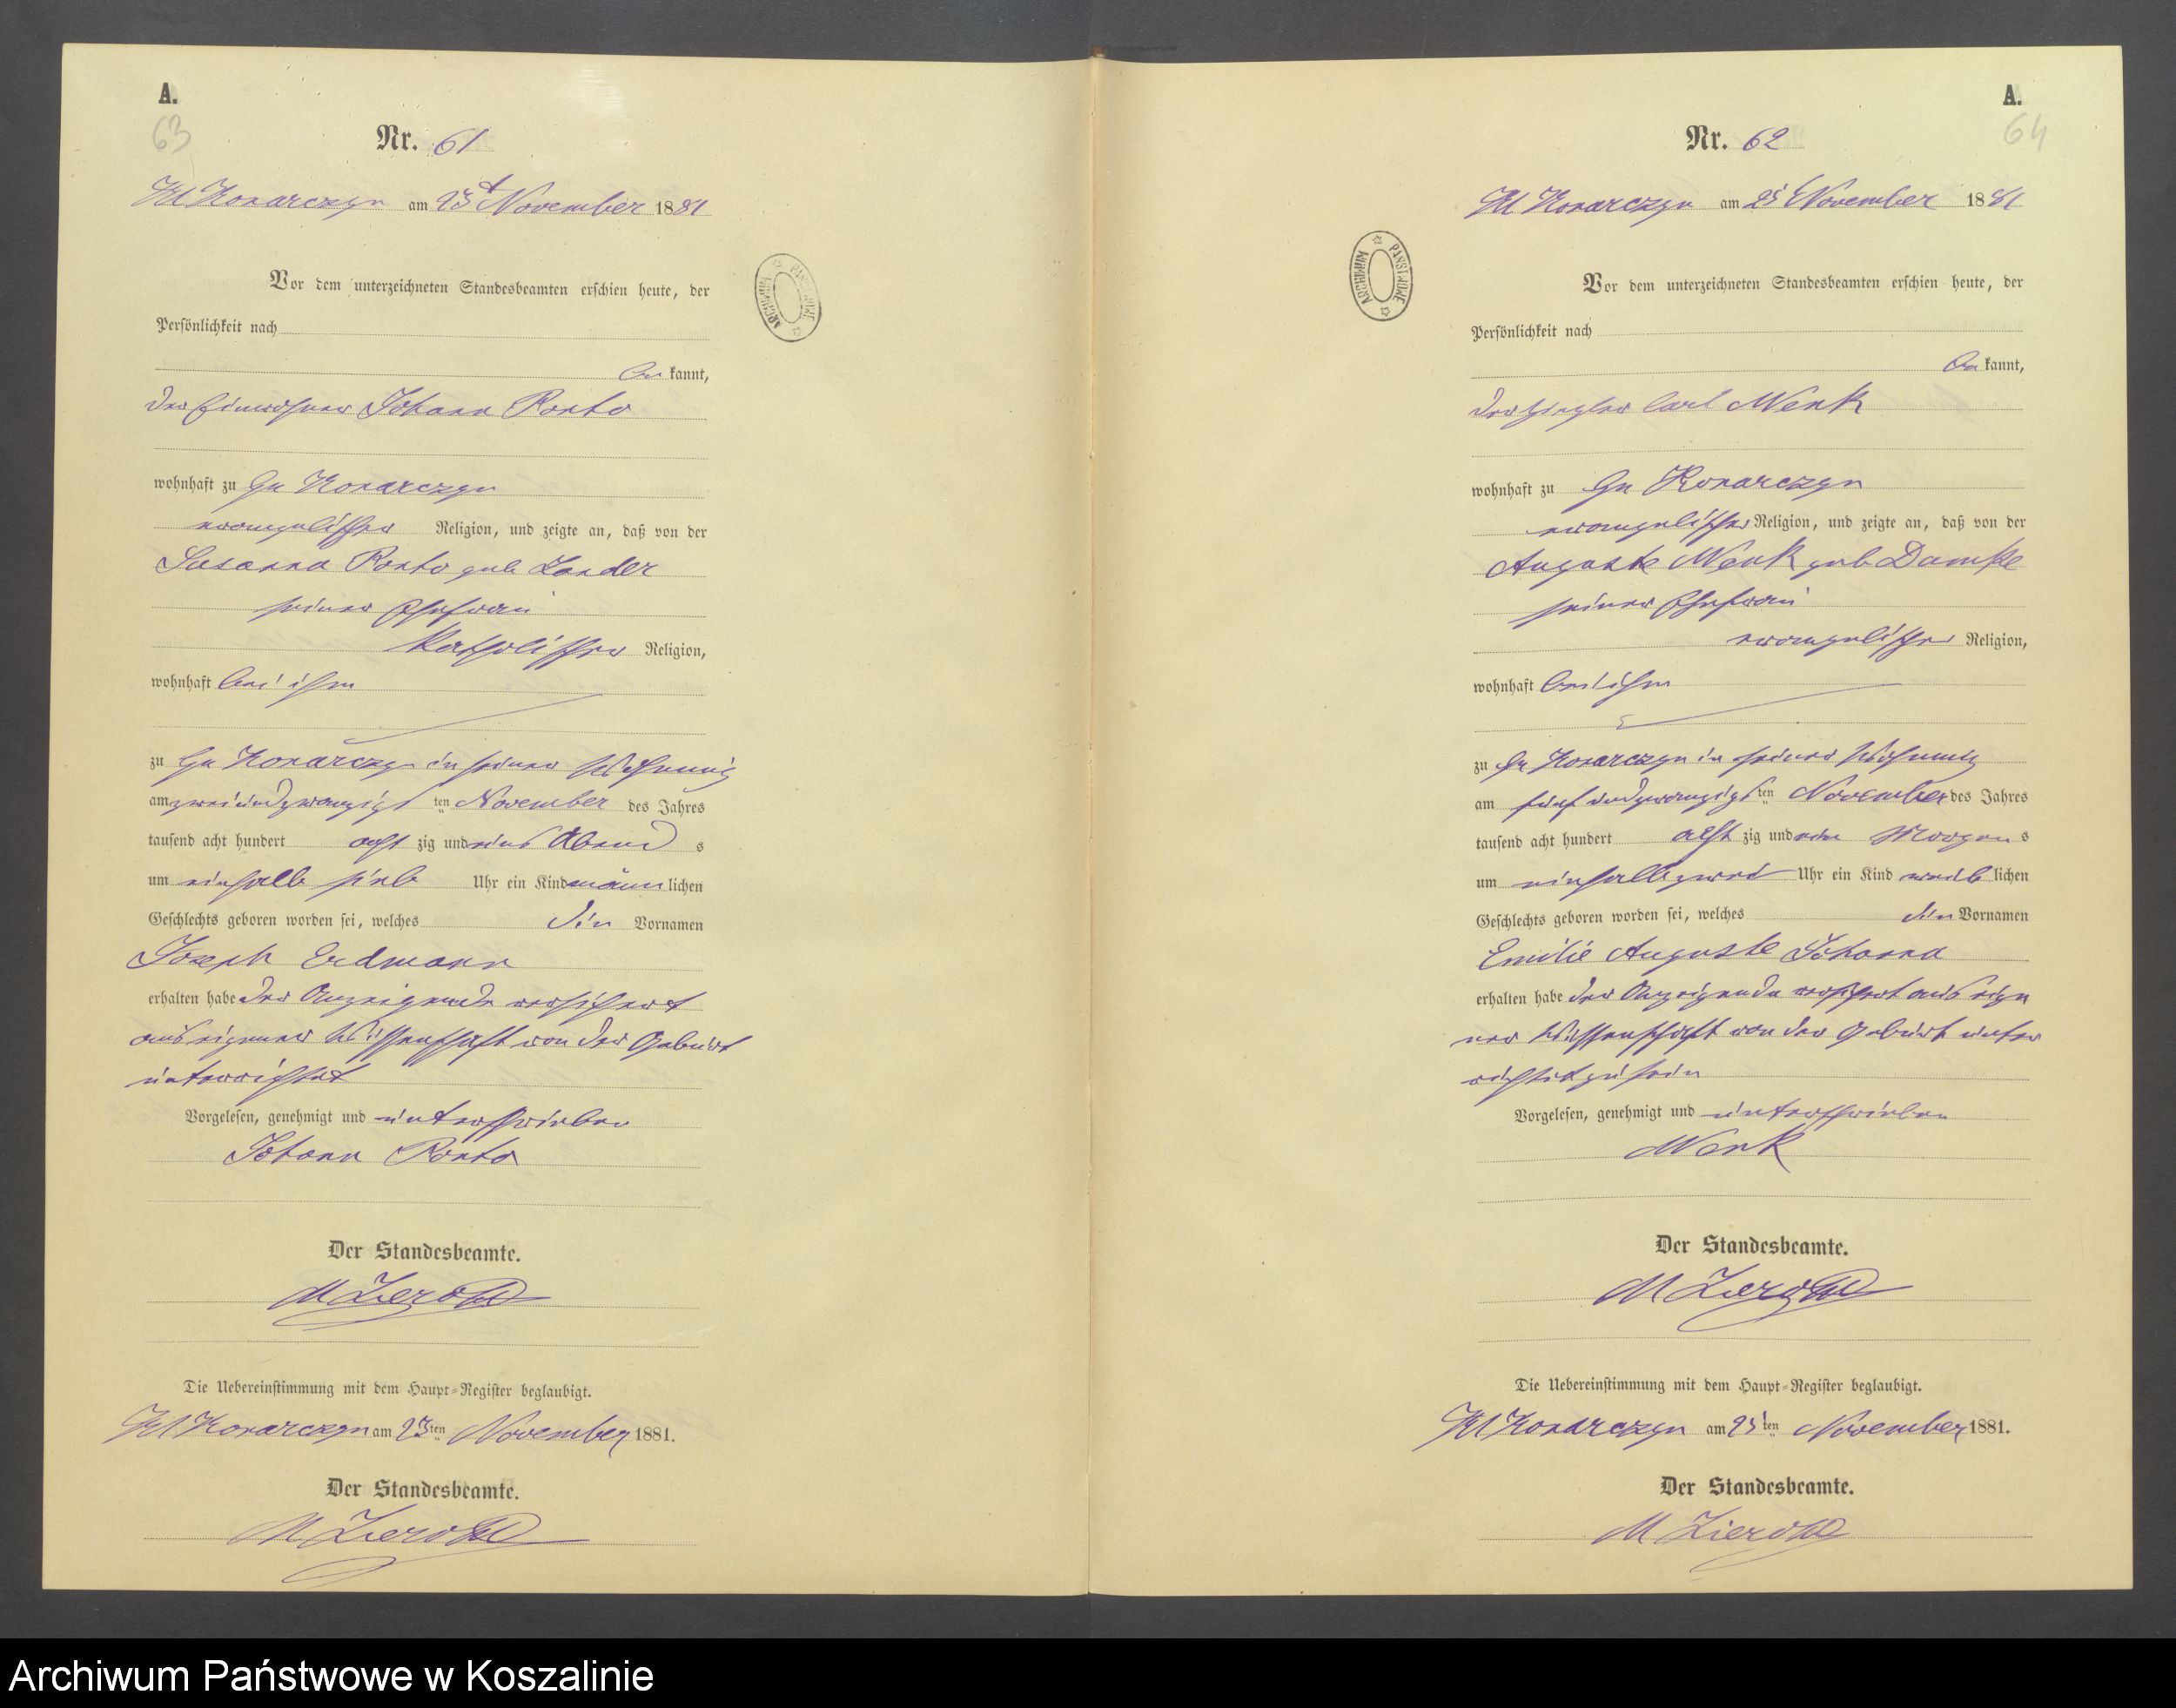 A.
63
Nr. 61
Kl Konarczyn am 23t November 1881
Vor dem unterzeichneten Standesbeamten erschien heute, der
Persönlichkeit nach
be kannt,
der Einwohner Johann Ponto
wohnhaft zu Gr Konarczyn
evangelischer Religion, und zeigte an, daß von der
Susanna Ponto geb Zander
seiner Ehefrau
katholischer Religion,
wohnhaft bei ihm
zu Gr Konarczyn in seiner Wohnung
am zweiundzwanzigsten November des Jahres
tausend acht hundert acht zig und eins Abend s
um einhalb sieb Uhr ein Kind männ lichen
Geschlechts geboren worden sei, welches die Vornamen
Joseph Erdmann
erhalten habe der Anzeigende versichert
aus eigener Wissenschaft von der Geburt
unterrichtet
Vorgelesen, genehmigt und unterschrieben
Johann Ponto
Der Standesbeamte.
Die Uebereinstimmung mit dem Haupt-Register beglaubigt.
Kl Konarczyn am 23ten November 1881.
Der Standesbeamte.
A.
64
Nr. 62
Kl Konarczyn am 25t November 1881
Vor dem unterzeichneten Standesbeamten erschien heute, der
Persönlichkeit nach
be kannt,
der Ziegler Carl Wenk
wohnhaft zu Gr Konarczyn
evangelischer Religion, und zeigte an, daß von der
Auguste Wenk geb Damke
seiner Ehefrau
evangelischer Religion,
wohnhaft bei ihm
zu Gr Konarczyn in seiner Wohnung
am fünfundzwanzigsten November des Jahres
tausend acht hundert acht zig und ein Morgen s
um einhalb zwei Uhr ein Kind weib lichen
Geschlechts geboren worden sei, welches die Vornamen
Emilie Auguste Johanna
erhalten habe der Anzeigende versichert aus eige
ner Wissenschaft von der Geburt unter
richtet zu sein
Vorgelesen, genehmigt und unterschrieben
Wenk
Der Standesbeamte.
Die Uebereinstimmung mit dem Haupt-Register beglaubigt.
Kl Konarczyn am 25ten November 1881.
Der Standesbeamte.
ARCHIWUM PAŃSTWOWE
ARCHIWUM PAŃSTWOWE
Archiwum Państwowe w Koszalinie